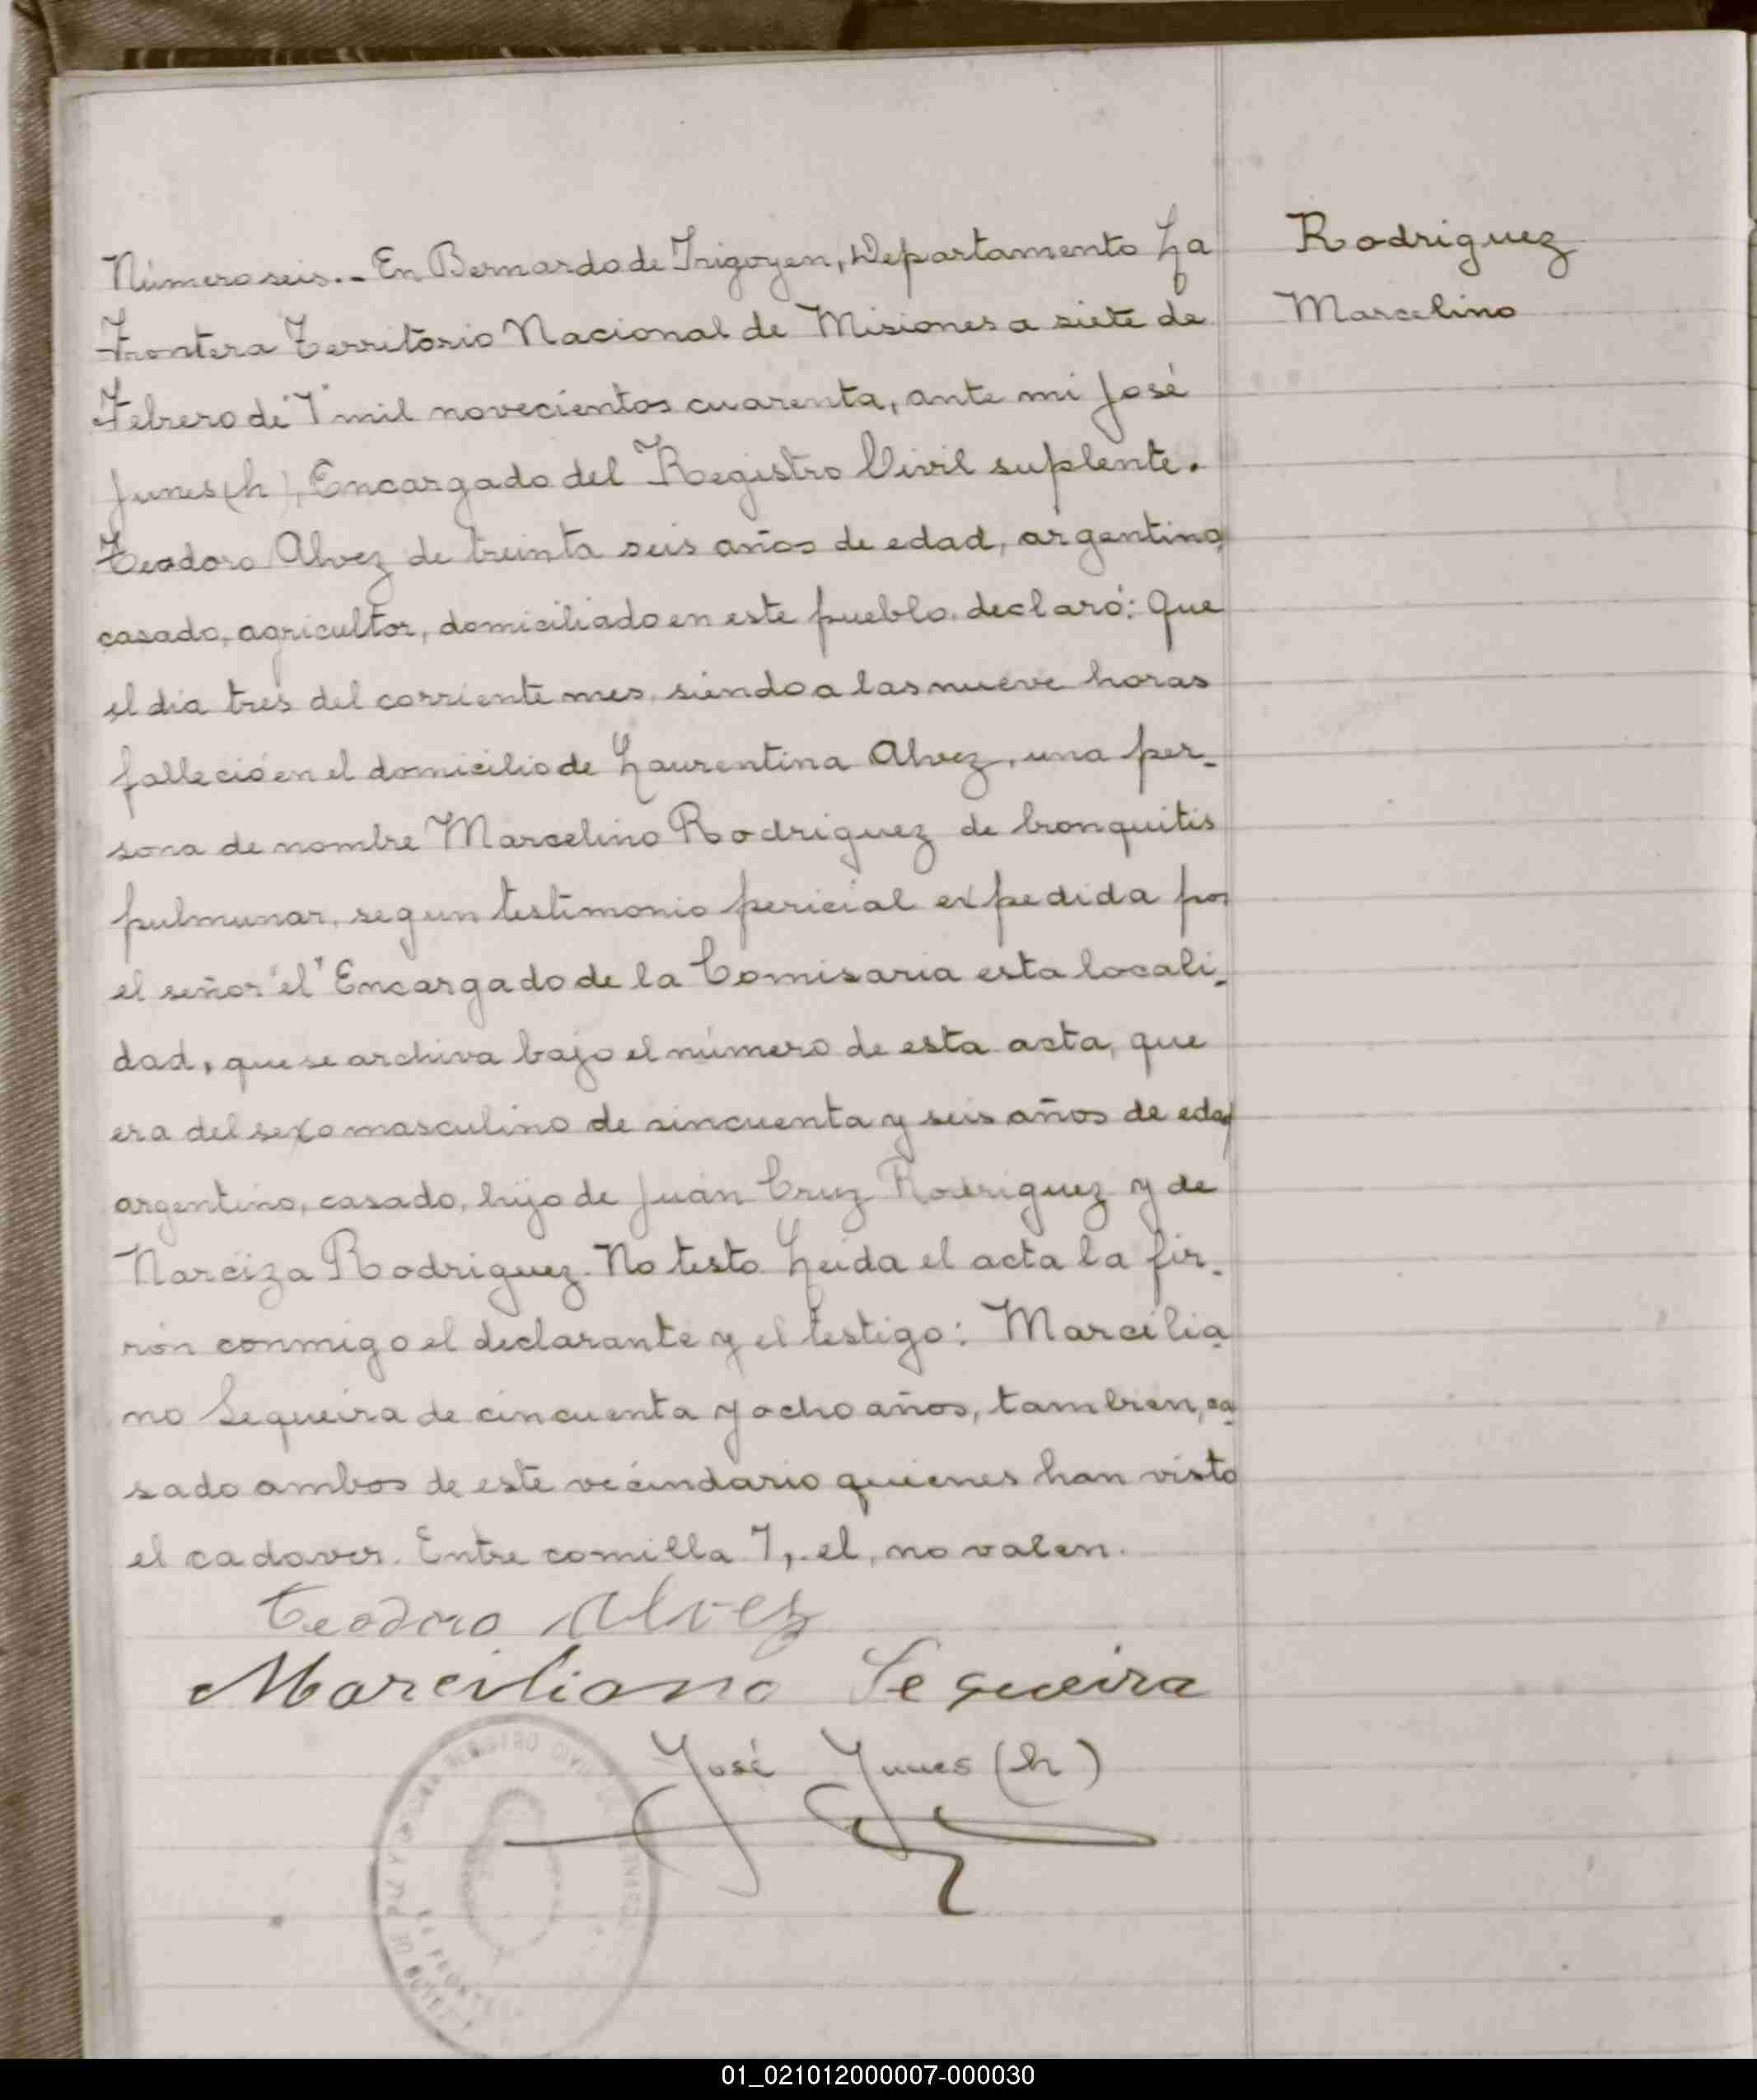 Rodriguez
Marcelino
Número seis. - En Bernardo de Irigoyen, Departamento La
Frontera Territorio Nacional de Misiones a siete de
Febrero de "7" mil novecientos cuarenta, ante mi José
Junes (h), Encargado del Registro Civil suplente.
Teodoro Alvez de treinta seis años de edad, argentino,
casado, agricultor, domiciliado en este pueblo, declaró: Que
el dia tres del corriente mes, siendo a las nueve horas
falleció en el domicilio de Laurentina Alvez, una per-
sona de nombre Marcelino Rodriguez de bronquitis
pulmunar, segun testimonio pericial expedida por
el señor "el" Encargado de la Comisaria esta locali-
dad, que se archiva bajo el número de esta acta, que
era del sexo masculino de sincuenta y seis años de edad
argentino, casado, hijo de Juan Cruz Rodriguez y de
Narciza Rodriguez. No testo. Leida el acta la fir-
rón conmigo el declarante y el testigo: Marcilia-
no Sequeira de cincuenta y ocho años, tambien, ca
sado ambos de este vecindario quienes han visto
el cadaver. Entre comilla 7, el, no valen.
Teodoro Alvez
Marciliano Sequeira
José Junes (h)
REGISTRO CIVIL
01_021012000007-000030